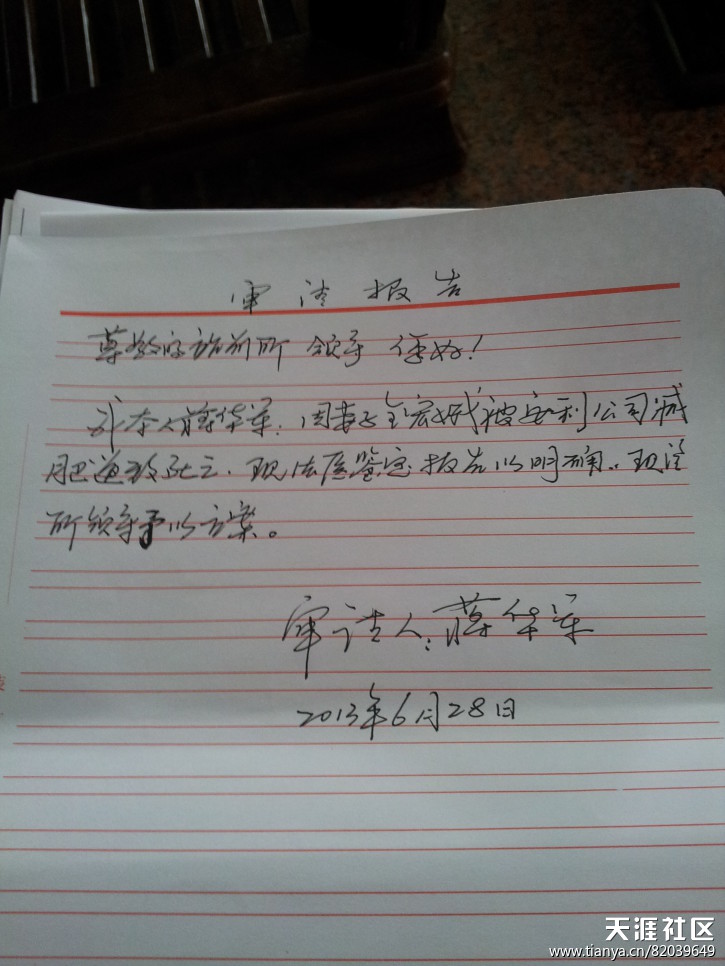 审请报告
尊敬的 所领导 你好!
我本人蒋华军,因妻子 被安利公司减
肥 致死亡,现法医鉴定报告以明确,现请
所领导予以立案。
审请人:蒋华军
2013年6月28日
天涯社区
www.tianya.cn/82039649